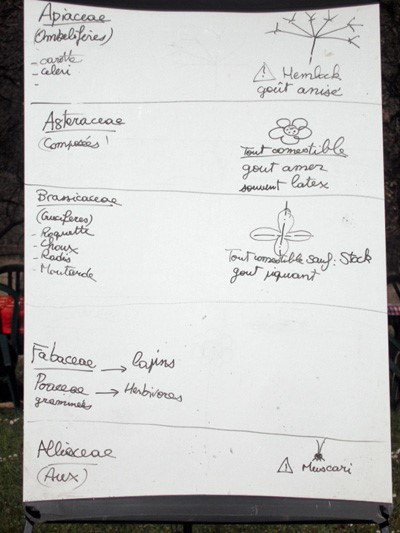 Apiaceae
(Ombellifères)
- carotte
- céleri
-
⚠ Hemlock
goût anisé
Asteraceae
(Composées)
Tout comestible
gout amer
souvent latex
Brassicaceae
(Crucifères)
- Roquette
- Choux
- Radis
- Moutarde
Tout comestible sauf: Stock
gout piquant
Fabaceae → lapins
Poaceae → Herbivores
graminées
Alliaceae
(Aux)
⚠ Muscari